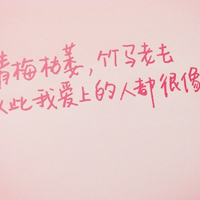 青梅枯萎，竹马老去
从此我爱上的人都很像